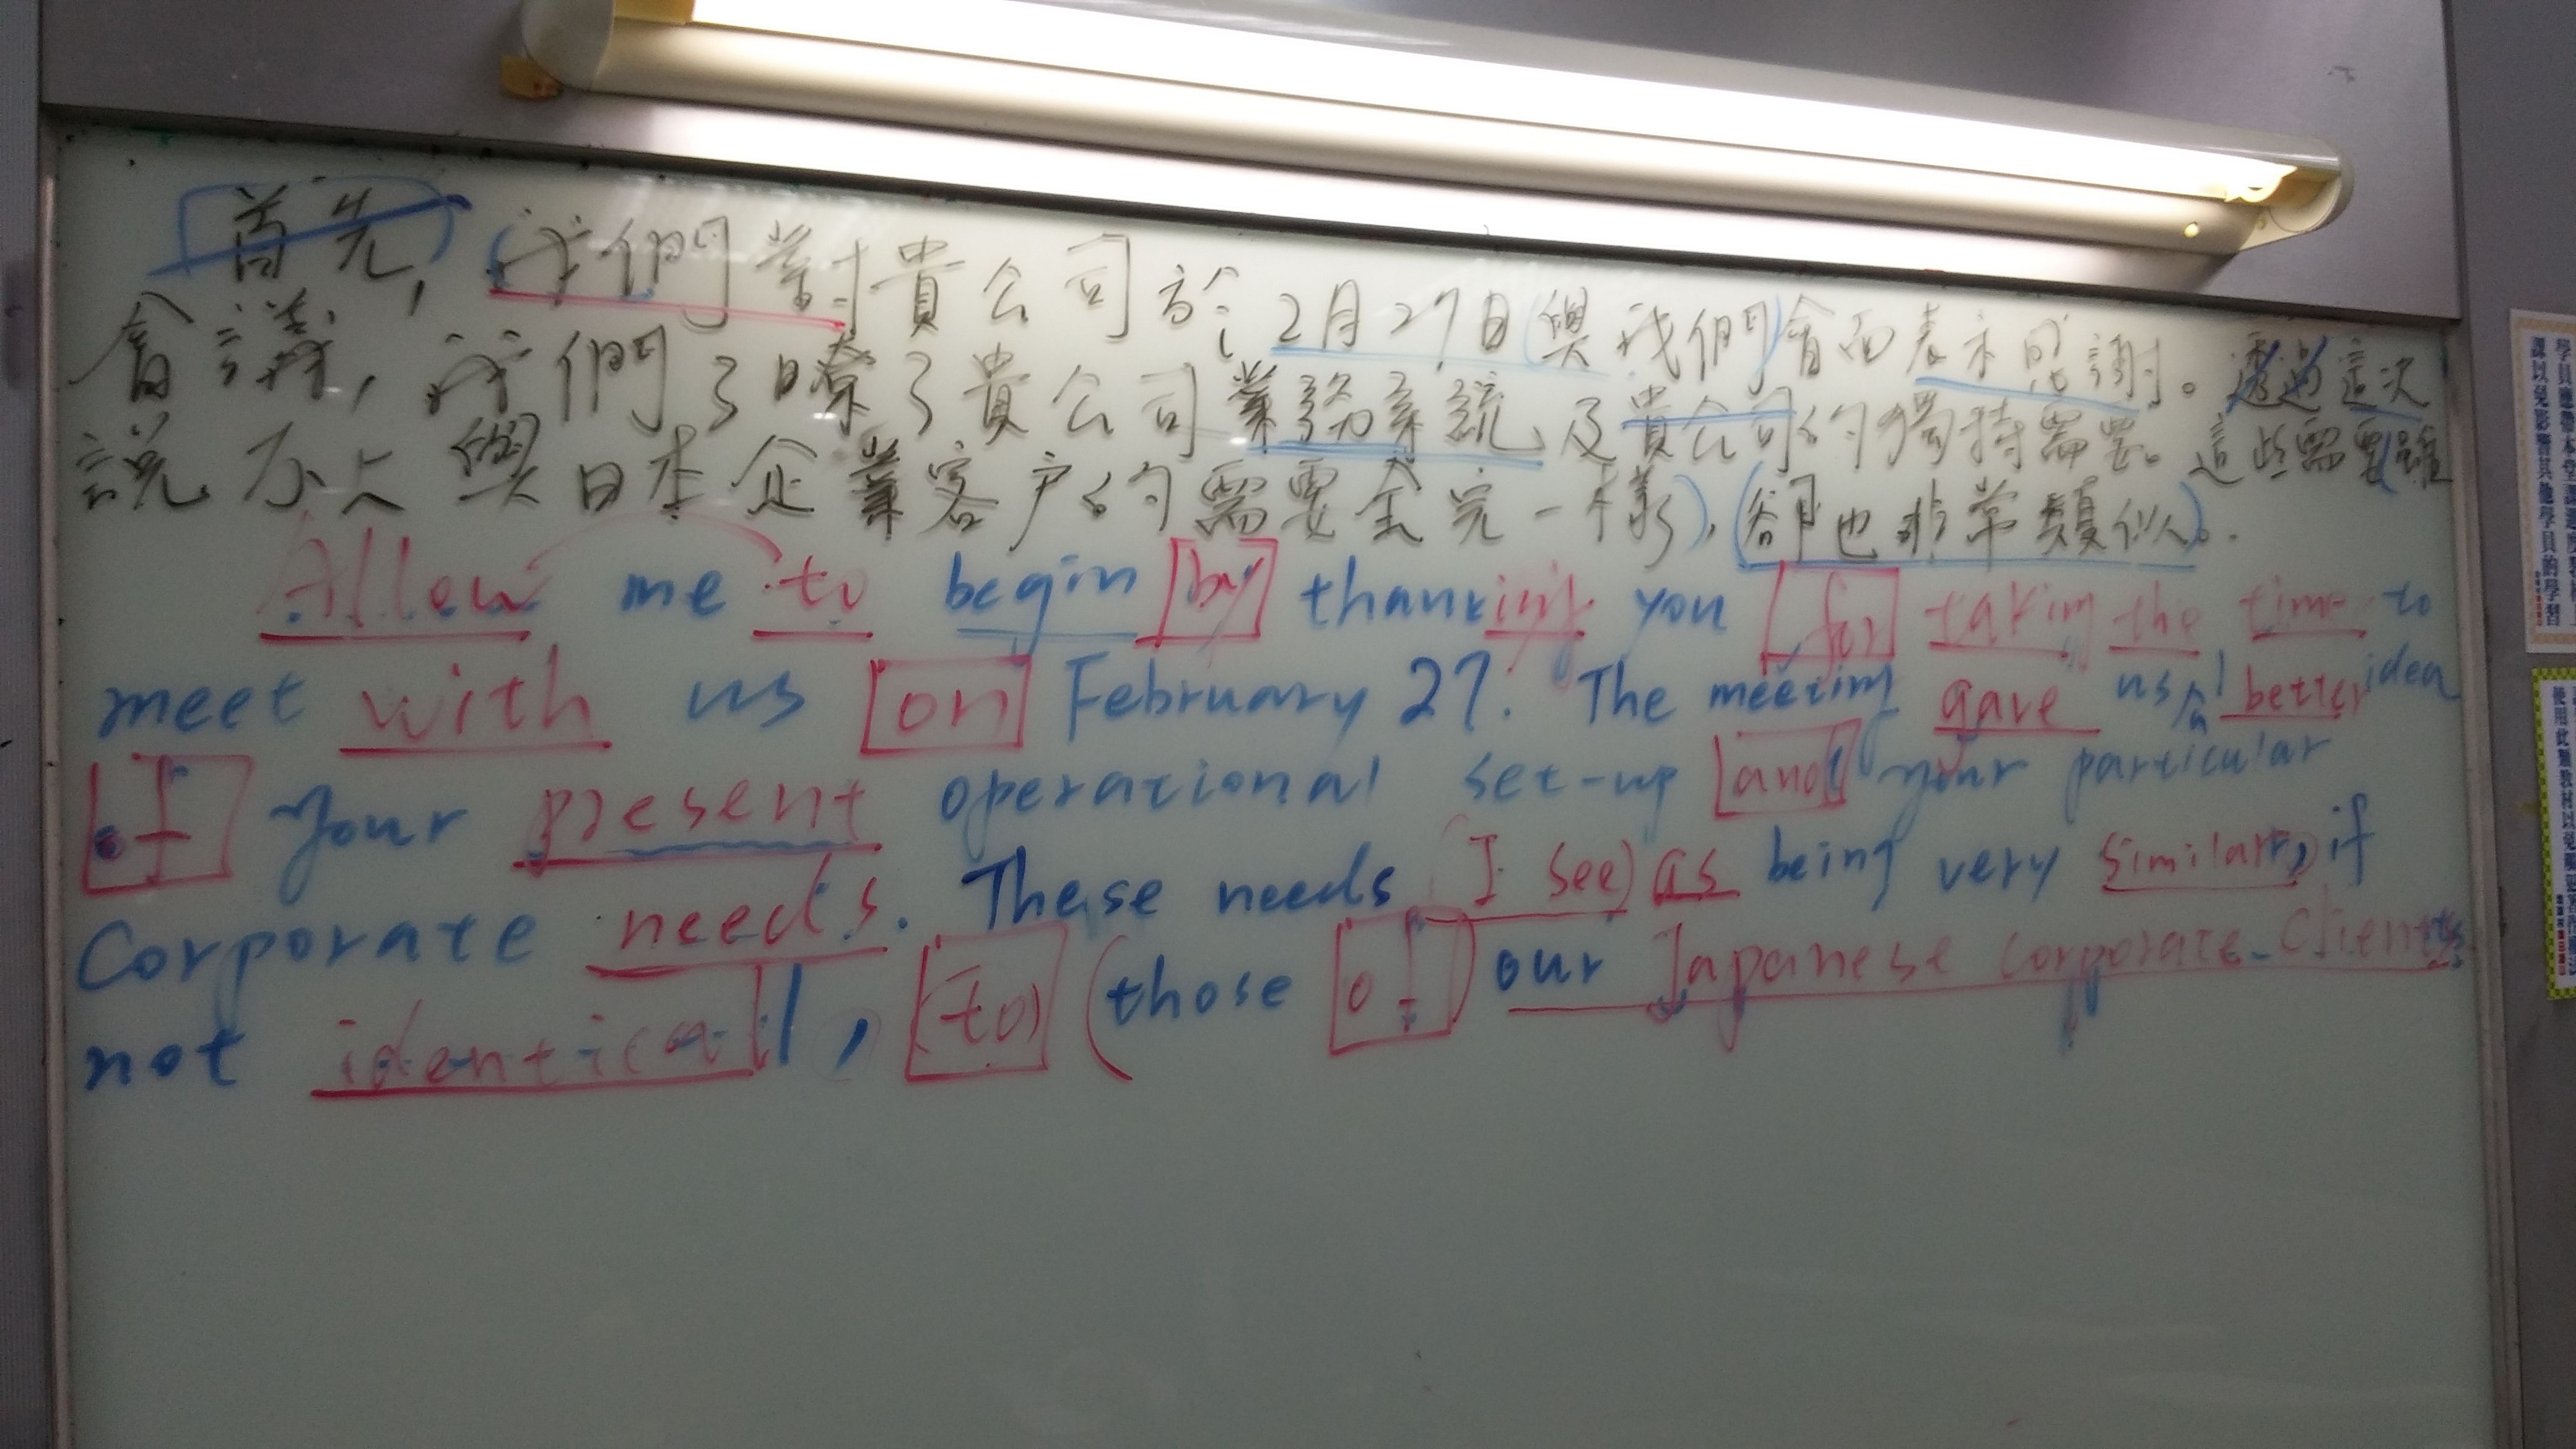 首先，我們對貴公司於2月27日與我們會面表示感謝。透過這次
會議，我們了暸了貴公司業務系統及貴公司的獨特需要。這些需要雖
說不上與日本企業客户的需要全完一樣，卻也非常類似。
Allow me to begin by thanking you for taking the time to
meet with us on February 27. The meeting gave us a better idea
of your present operational set-up and your particular
Corporate needs. These needs (I see) as being very similar, if
not identical, (to) (those of) our Japanese corporate clients